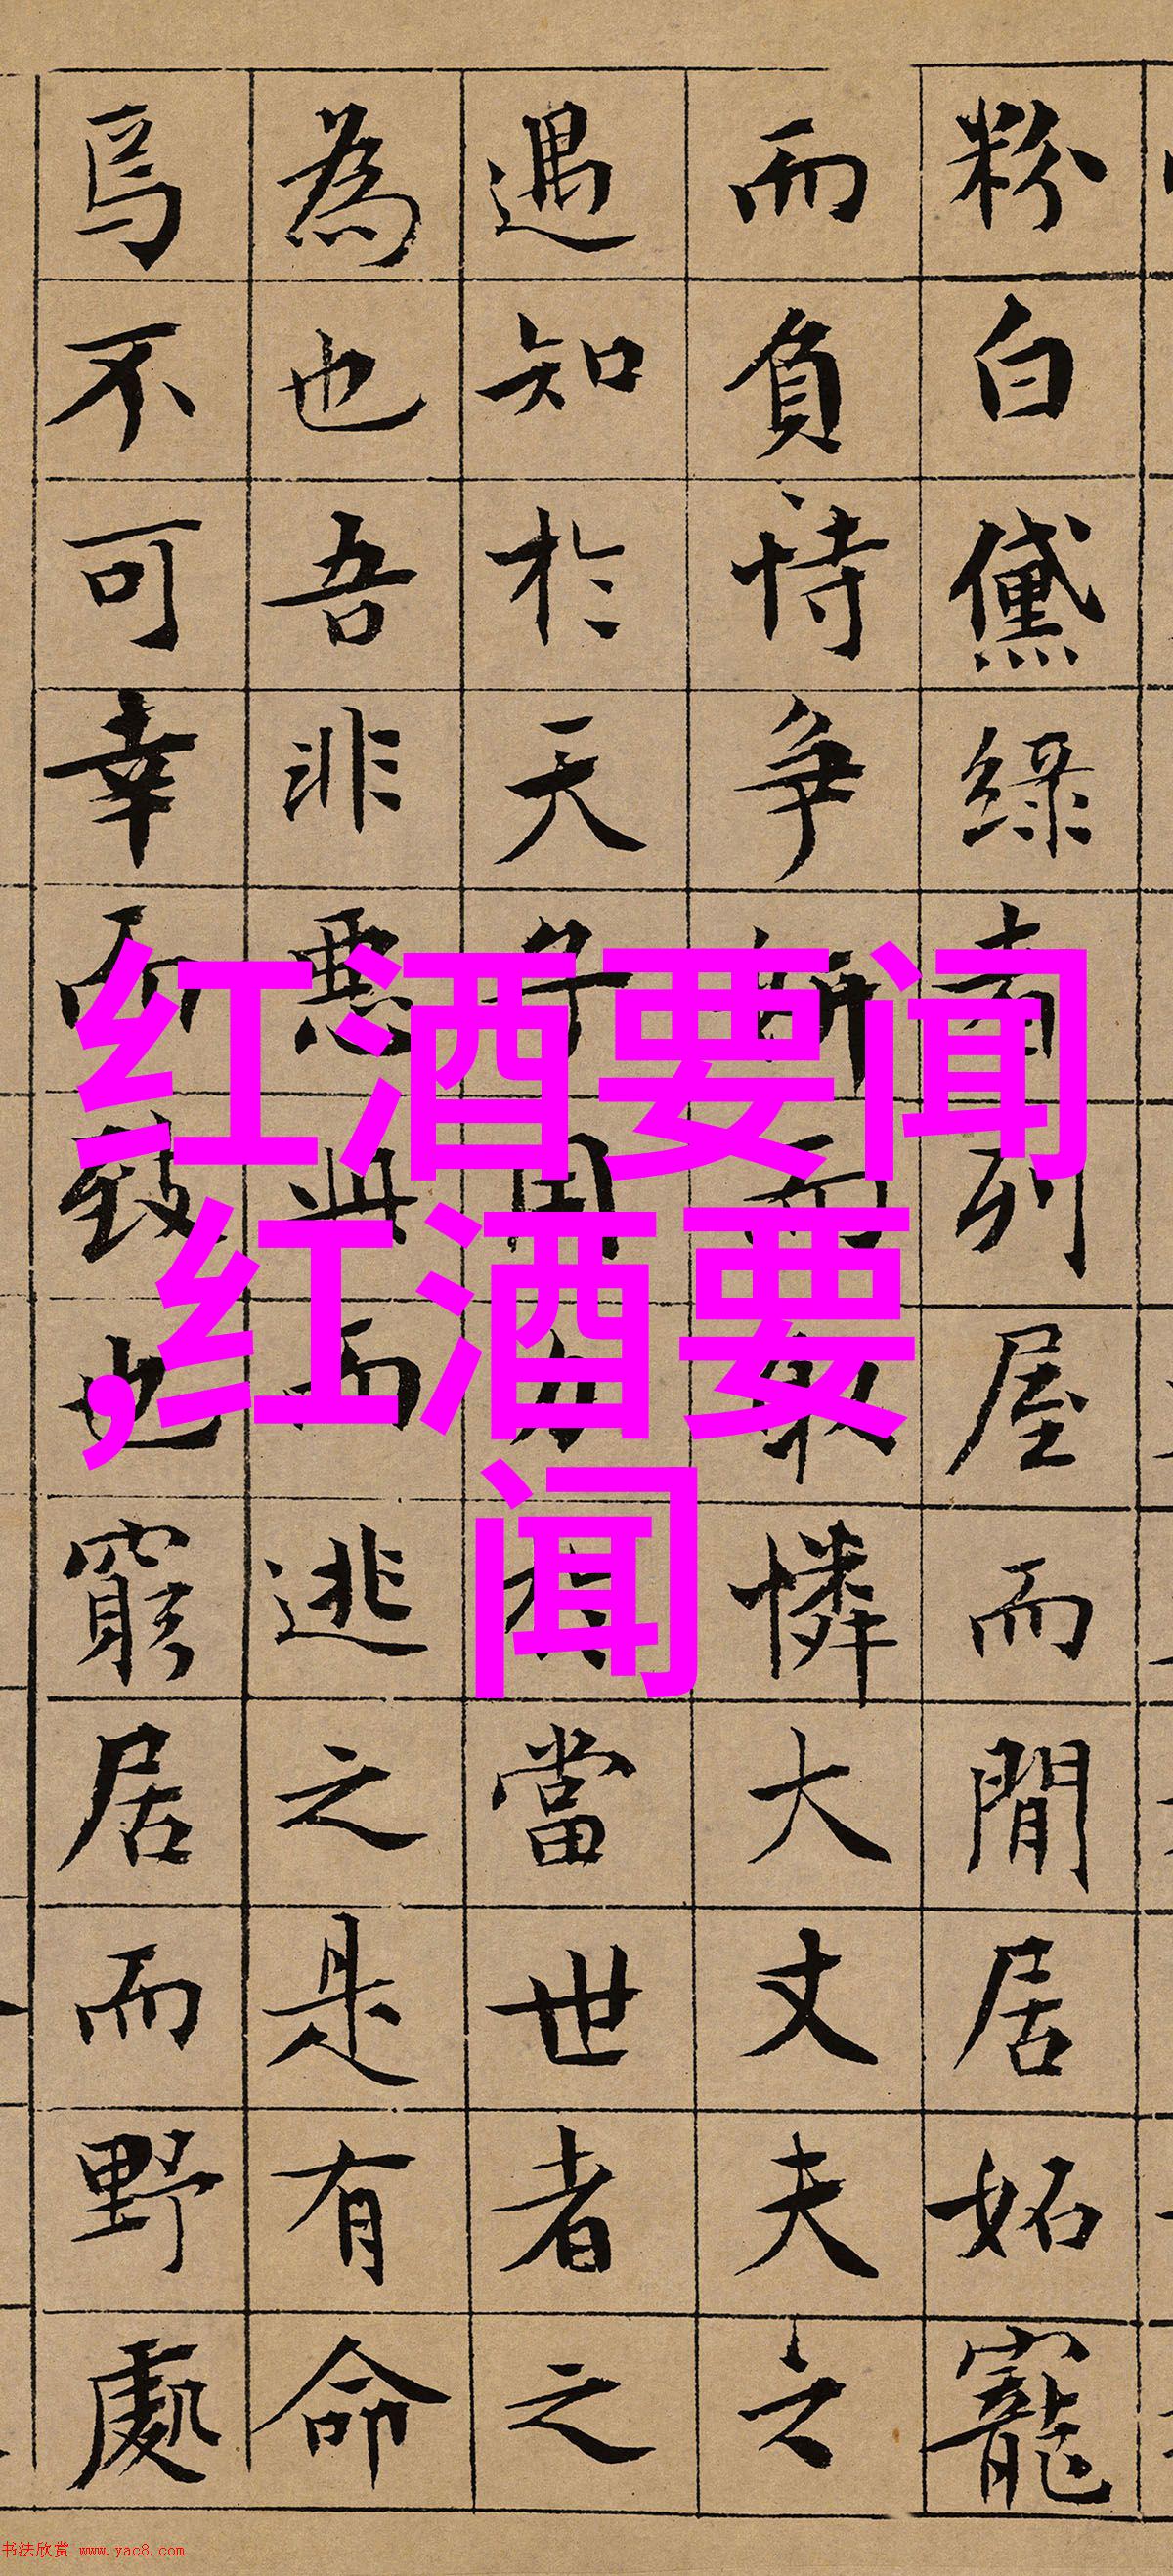 粉白黛綠者列屋而閒居妬寵
而負恃爭妍而取憐大丈夫之
遇知於天子用力於當世者之
為也吾非惡此而逃之是有命
焉不可幸而致也窮居而野處
红酒要闻
,红酒要
闻
书法欣赏 www.yac8.com